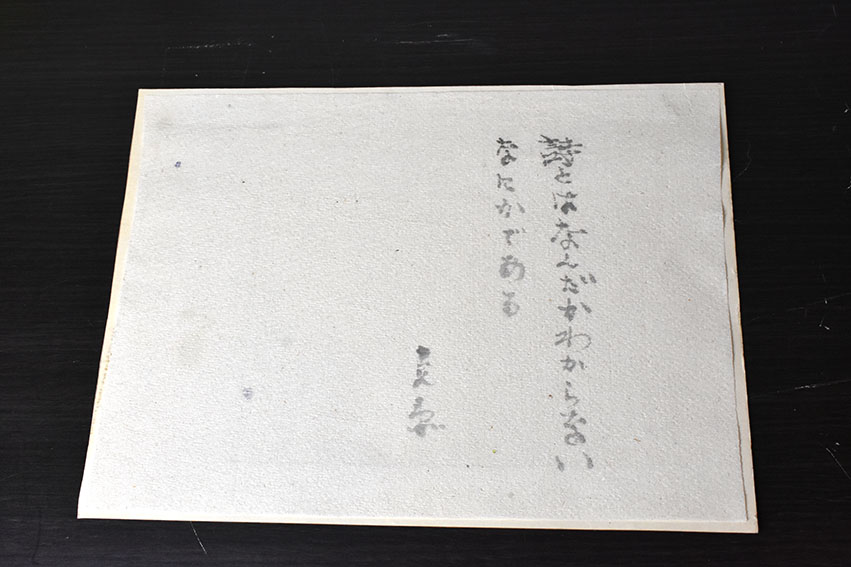 詩とはなんだかわからない
なにかである